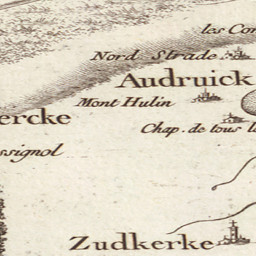 les Con
Nord Strade
Audruick
Mont Hulin
ercke
Chap. de tous l
ssignol
Zudkerke